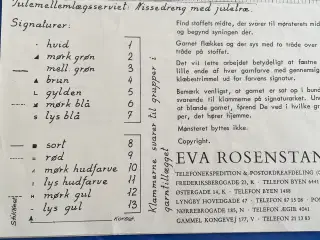 Julemellemlægsserviet: Nissedreng med juletræ.
Signaturer:
· hvid 1
× mørk grøn 2
mell grøn 3
▲ brun 4
gylden 5
mørk blå 6
lys blå 7
sort 8
rød 9
∧ mørk hudfarve 10
lys hudfarve 11
mørk gul 12
lys gul 13
Klammerne svarer til grupper i
garntillægget
Find stoffets midte, der svarer til mønsterets midt
og begynd syningen der.
Garnet flækkes og der sys med to tråde over
tråde på stoffet.
Det vil lette arbejdet betydeligt at fæstne
lille ende af hver garnfarve med gennemskinnelig
klæbestrimmel ud for signaturen i arket.
Bemærk venligst, at garnet er sat op i bundt
svarende til klammerne på signaturarket. Und
at blande garnet, Spørg De ved i hvilke gr
det hører hjemme.
Mønsteret byttes ikke.
Copyright.
EVA ROSENSTAN
TELEFONEKSPEDITION & POSTORDREAFDELING (C
FREDERIKSBERGGADE 23, K. - TELEFON BYEN 6441
ØSTERGADE 14, K. - TELEFON BYEN 1400
LYNGBY HOVEDGADE 47 - TELEFON 87 15 08
NØRREBROGADE 185, N. - TELEFON ÆGIR 4041
GAMMEL KONGEVEJ, V. - TELEFON 21 13 83